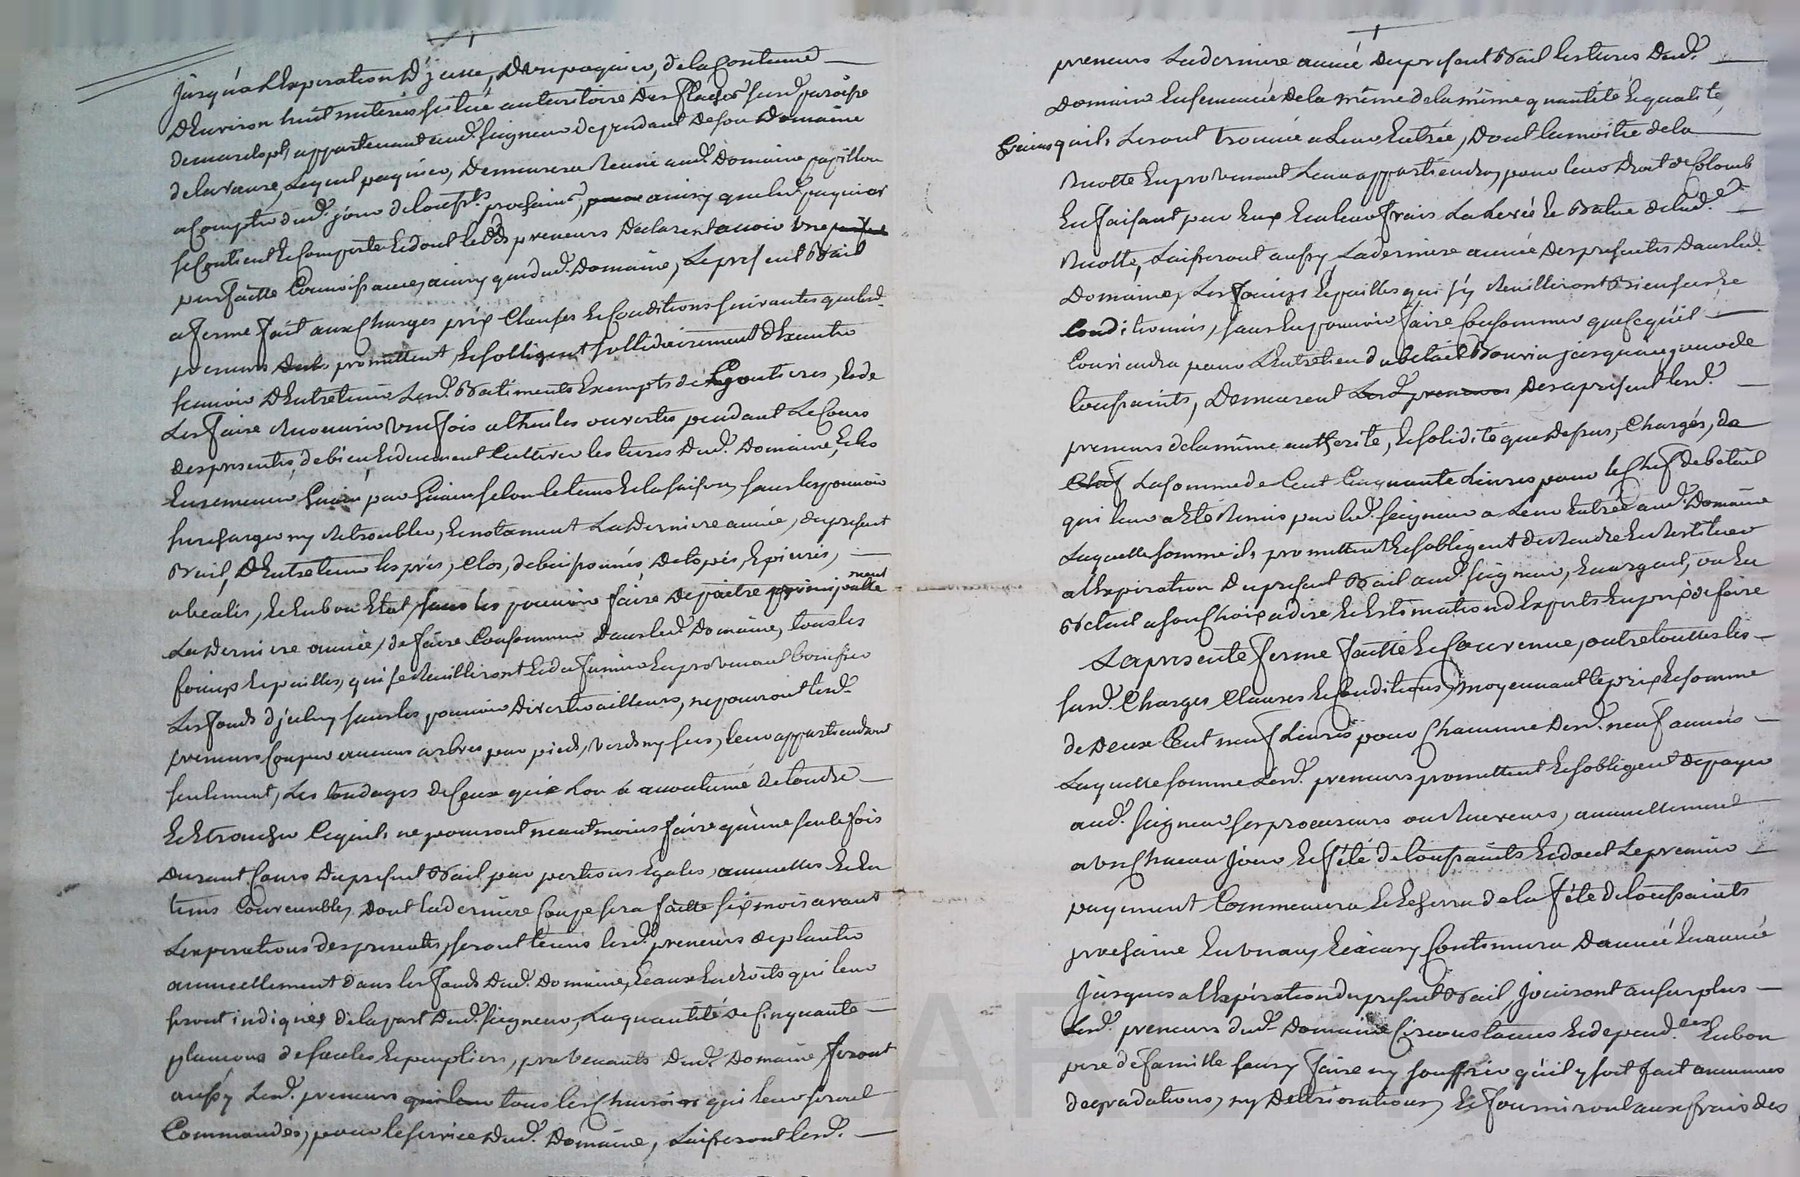 Jusqu'à l'Expiration d'jcelle, d'un paquier, de la Contenue
d'Environ huit mıterés situé au territoire des flaces susd. paroisse
appartenant aud. seigneur dependant de son Domaine
de la vaure, Lequel paquier, demeurera reuni aud. Domaine papillon
a Compter dud. jour de toussts. prochains, ainsy que led. paquier
se Contient et Comporte et dont lesd. preneurs declarent avoir une
parfaitte Connoissance, ainsy que dud. Domaine, Le present Bail
a ferme fait aux Charges prix Clauses et Conditions suivantes que lesd.
preneurs promettent et s'obligent sollidairement d'Executer
scavoir d'Entretenir Lesd. Batiments Exempts de goutieres, et de
Les faire recouvrir une fois a thuiles ouvertes pendant Le Cours
des presentes, de bien et duement Cultiver les terres dud. Domaine, et les
Ensemencer Grain par Grain selon le tems et la saison, sans les pouvoir
surcharger ny retroubler, et notament La derniere année, du present
Bail, d'Entretenir les prés, Clos, de buissonnés detopés, et pierés,
abealés, et En bon Etat, sans les pouvoir faire depaitre principallement
La derniere année, de faire Consommer dans led. Domaine, tous les
foings et pailles, qui se recuilliront et du fumier En provenant bonifier
Les fonds d'jceluy sans les pouvoir divertir ailleurs, ne pouront lesd.
preneurs Couper aucuns arbres par pied, verds ny secs, leur appartiendra
seulement, Les tondages de Ceux que L'on à accoutumé de tondre
Et Etroncher Ce qu'ils ne pouront neantmoins faire qu'une seule fois
durant Cours du present Bail par portions Egales, annuelles et En
tems Convenables, dont la derniere Coupe sera faitte six mois avant
L'expirations des presentes, seront tenus lesd. preneurs de planter
annuellement dans les fonds dud. Domaine, et aux Endroits qui leur
seront indiqués de la part dud. seigneur, La quantité de Cinquante
plançons de saules et peupliers, provenants dud. Domaine, feront
aussy Lesd. preneurs tous les Charois qui leur seront
Commandés, pour le service dud. Domaine, Laisseront lesd.
preneurs La derniere année du present Bail les terres dud.
Domaine Ensemencée de la même de la même quantité et qualité
Grains qu'ils Les ont trouvée a Leur Entrée, dont la moitié de la
recolte En provenant Leur appartiendra, pour leur droit de Colomb
En faisant par Eux Et a leur frais La Levée et Batue de lad.
recolte, Laisseront aussy La derniere année des presentes dans led.
Domaine, Les foings et pailles qui s'y recuilliront Bien serré et
Conditionnés, sans En pouvoir faire Consommer que Ce qu'il
Conviendra pour L'entretien du betail Bouvin jusqu'au jour de
toussaints, demeurent des apresent lesd.
preneurs de la même authorité, et solidité que dessus, Chargés, de
La somme de Cent Cinquante Livres pour le Chef de betail
qui leur a Eté remis par led. seigneur a Leur Entrée aud. Domaine
Laquelle somme ils promettent et s'obligent de rendre et restituer
a l'Expiration du present Bail aud. seigneur, En argent, ou En
Betail a son Choix a dire et Estimation d'Experts En prix de foire
La presente ferme faitte et Convenue, outre touttes les
susd. Charges Clauses et Conditions, moyennant le prix et somme
de deux Cent neuf Livres pour Chacune desd. neuf années
Laquelle somme Lesd. preneurs promettent et s'obligent de payer
aud. seigneur ses procureurs ou receveurs, annuellement
a un Chacun jour et fête de toussaints Et dont Le premier
payement Commencera Et Echerra de la fête de toussaints
prochaine En un an, Et ainsy Continuera d'année En année
Jusques a l'Expiration du present Bail Jouiront au surplus
Lesd. preneurs dud. Domaine Circonstances Et dependces. En bon
pere de famille sans y faire ny souffrir qu'il y soit fait aucunes
degradations, ny deteriorations, Et fourniront aux frais des